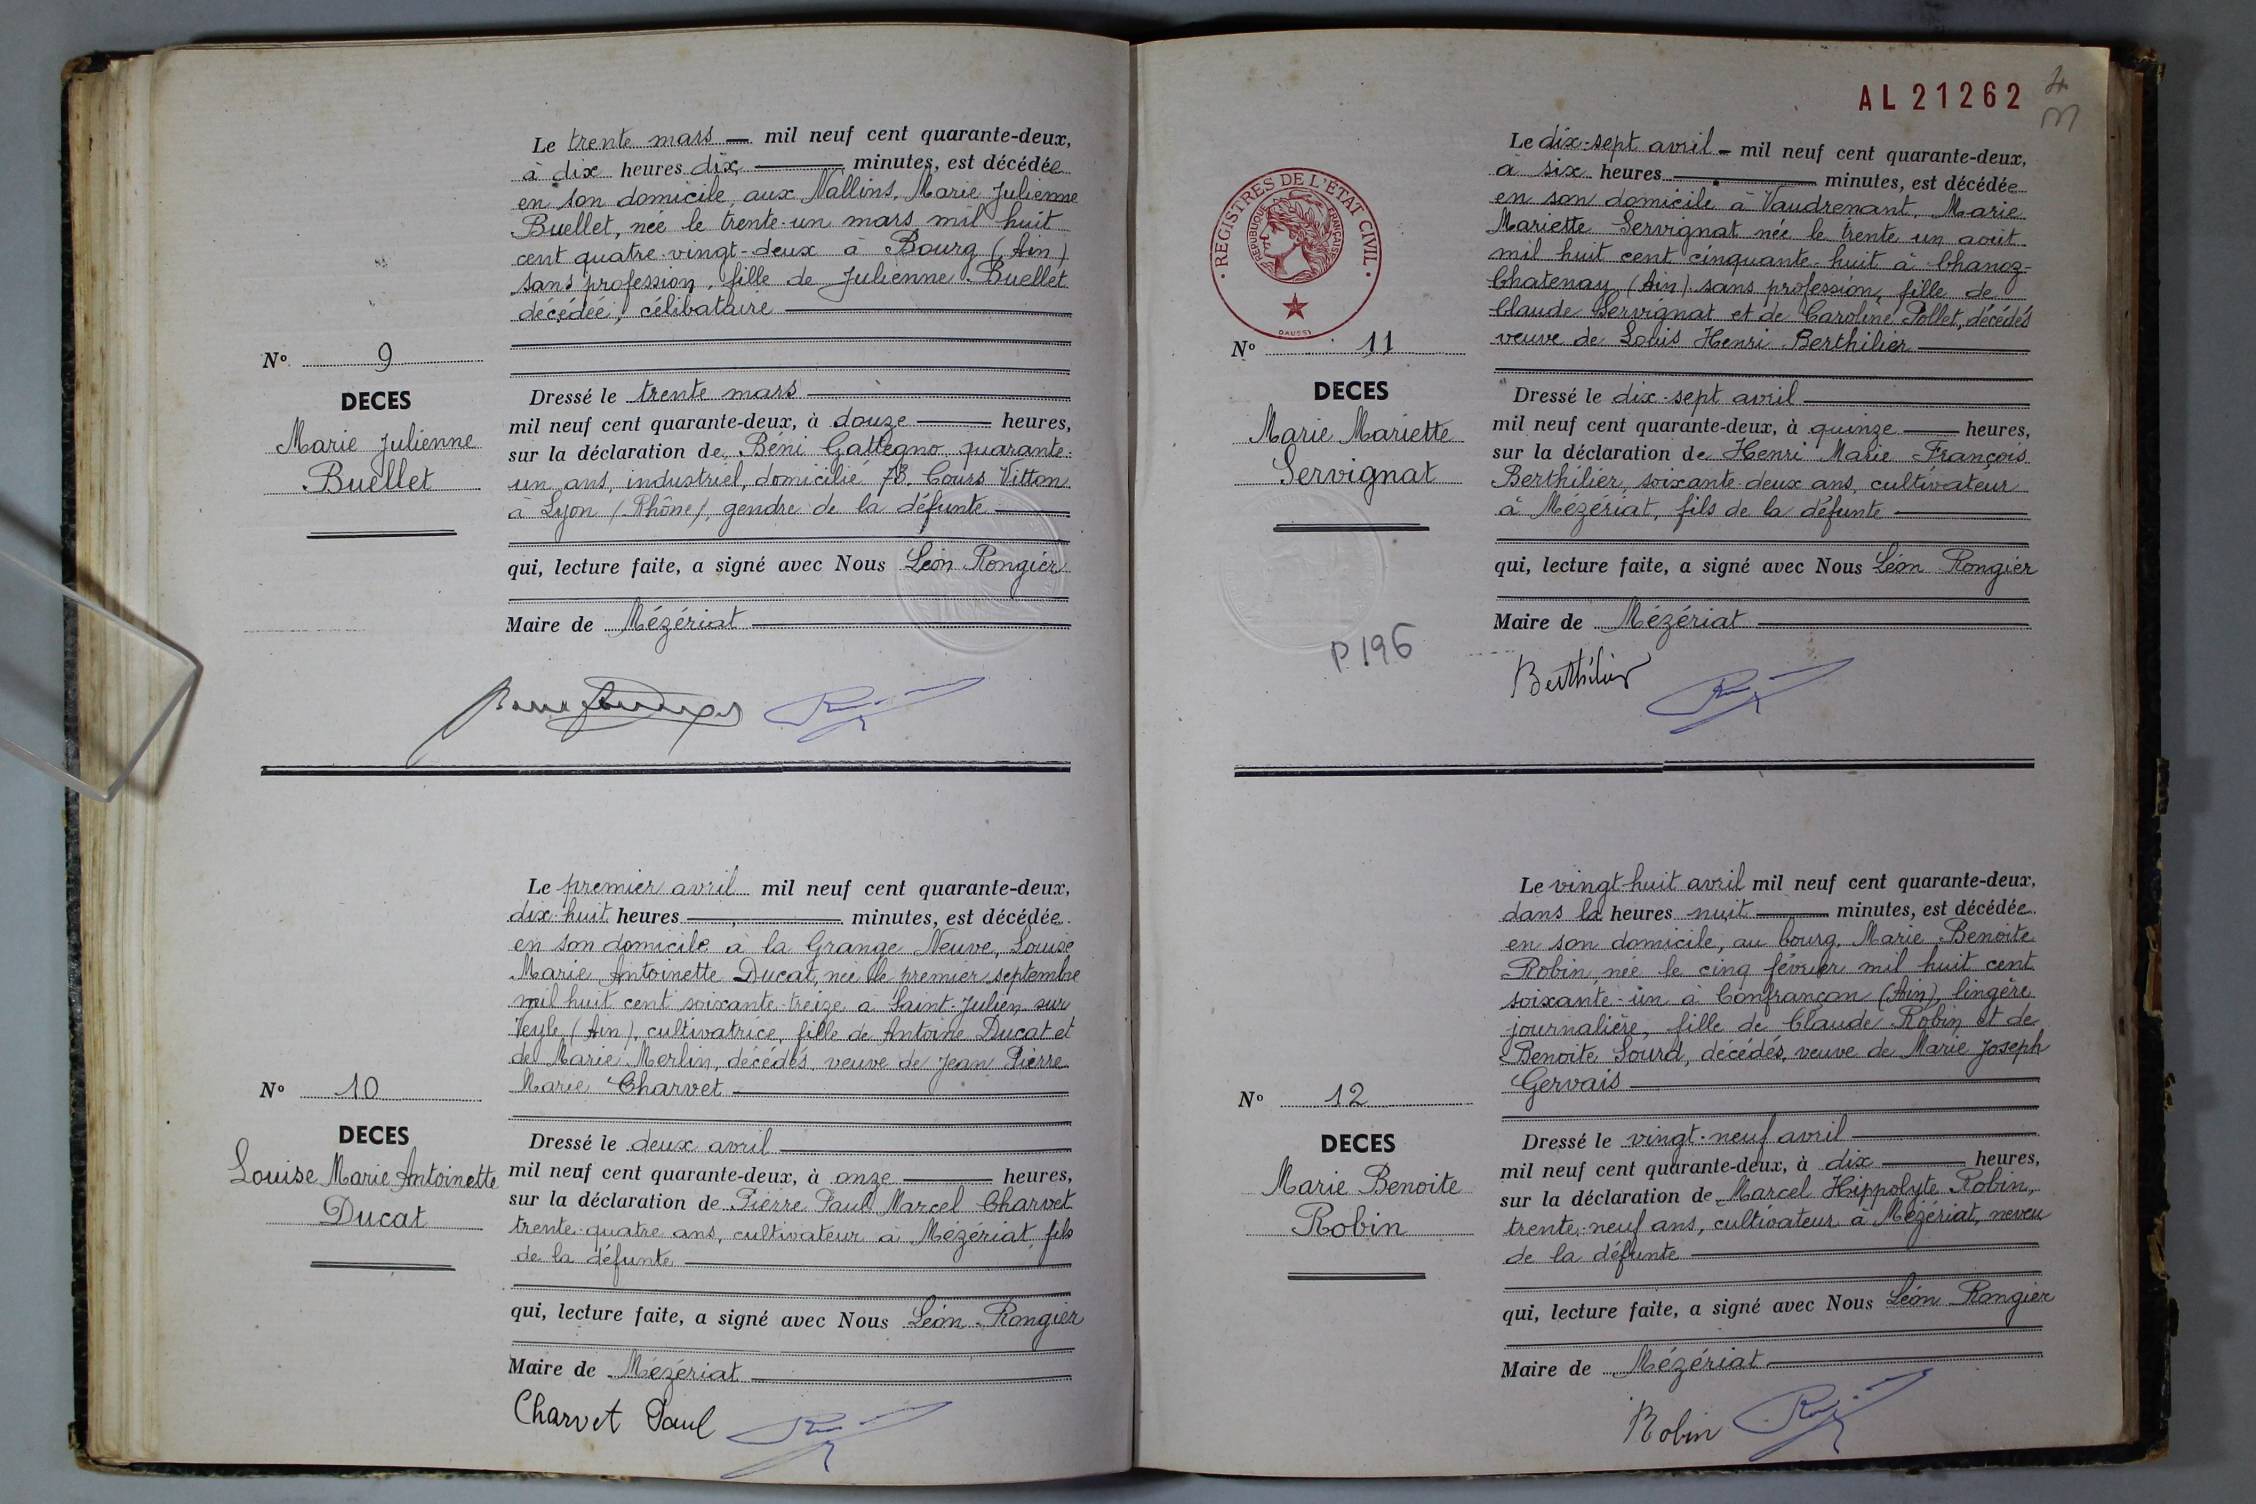 Le trente mars — mil neuf cent quarante-deux,
à dix heures dix — minutes, est décédée
en son domicile, aux Nallins, Marie Julienne
Buellet, née le trente-un mars mil huit
cent quatre-vingt-deux à Bourg (Ain)
sans profession, fille de Julienne Buellet
décédée, célibataire —
N° 9
DECES
Marie Julienne
Buellet
Dressé le trente mars —
mil neuf cent quarante-deux, à douze — heures,
sur la déclaration de Béni Gattegno quarante-
un ans, industriel, domicilié 73 Cours Vitton
à Lyon (Rhône), gendre de la défunte —
qui, lecture faite, a signé avec Nous Léon Rongier
Maire de Mézériat —
Le premier avril mil neuf cent quarante-deux,
dix-huit heures — minutes, est décédée
en son domicile à la Grange Neuve, Louise
Marie Antoinette Ducat, née le premier septembre
mil huit cent soixante-treize à Saint-Julien sur
Veyle (Ain), cultivatrice, fille de Antoine Ducat et
de Marie Merlin, décédés veuve de Jean Pierre
Marie Charvet —
N° 10
DECES
Louise Marie Antoinette
Ducat
Dressé le deux avril —
mil neuf cent quarante-deux, à onze — heures,
sur la déclaration de Pierre Paul Marcel Charvet
trente-quatre ans, cultivateur à Mézériat, fils
de la défunte —
qui, lecture faite, a signé avec Nous Léon Rongier
Maire de Mézériat —
Charvet Paul
AL 21262
4
REGISTRES DE L'ETAT CIVIL
REPUBLIQUE FRANÇAISE
DAUSSY
Le dix-sept avril — mil neuf cent quarante-deux,
à six heures — minutes, est décédée
en son domicile à Vaudrenant, Marie
Mariette Servignat née le trente un août
mil huit cent cinquante-huit à Chanoz-
Chatenay (Ain) sans profession, fille de
Claude Servignat et de Caroline Pollet, décédés
veuve de Louis Henri Berthilier —
N° 11
DECES
Marie Mariette
Servignat
Dressé le dix-sept avril —
mil neuf cent quarante-deux, à quinze — heures,
sur la déclaration de Henri Marie François
Berthilier, soixante-deux ans, cultivateur
à Mézériat, fils de la défunte —
qui, lecture faite, a signé avec Nous Léon Rongier
Maire de Mézériat —
P 196
Berthilier
Le vingt-huit avril mil neuf cent quarante-deux,
dans la heures nuit — minutes, est décédée
en son domicile, au bourg, Marie Benoite
Robin, née le cinq février mil huit cent
soixante-un à Confrançon (Ain), lingère
journalière, fille de Claude Robin et de
Benoite Sourd, décédés, veuve de Marie Joseph
Gervais —
N° 12
DECES
Marie Benoite
Robin
Dressé le vingt-neuf avril —
mil neuf cent quarante-deux, à dix — heures,
sur la déclaration de Marcel Hippolyte Robin,
trente-neuf ans, cultivateur à Mézériat, neveu
de la défunte —
qui, lecture faite, a signé avec Nous Léon Rongier
Maire de Mézériat —
Robin